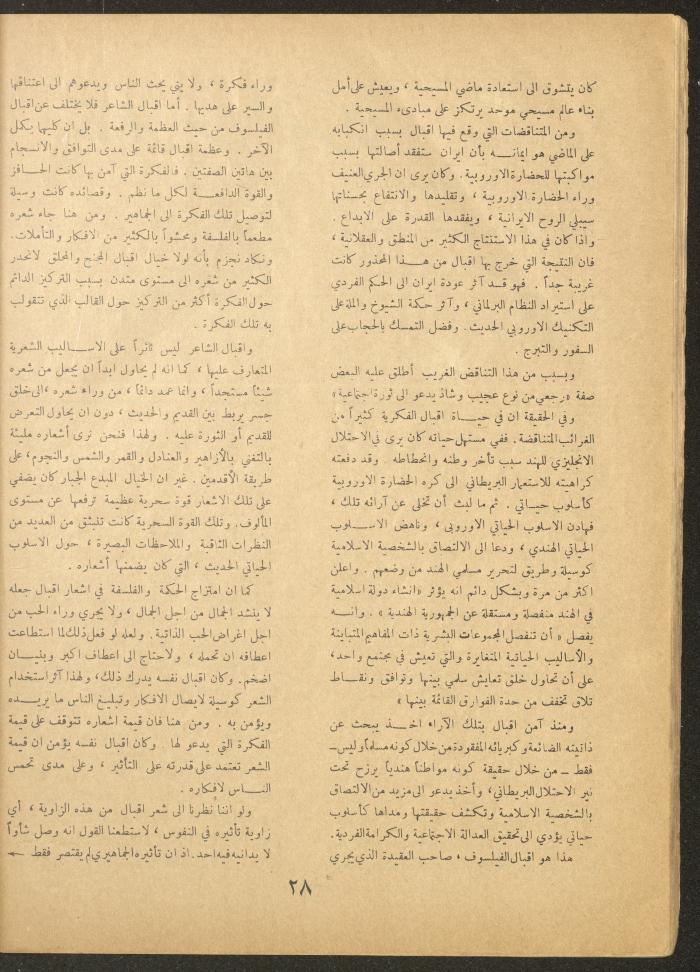 كان يتشوق الى استعادة ماضي المسيحية ، ويعيش على أمل
بناء عالم مسيحي موحد يرتكز على مبادىء المسيحية .
ومن المتناقضات التي وقع فيها اقبال بسبب انكبابه
على الماضي هو ايمانه بأن ايران ستفقد أصالتها بسبب
مواكبتها للحضارة الاوروبية . وكان يرى ان الجري العنيف
وراء الحضارة الاوروبية ، وتقليدها والانتفاع بحسناتها
سيبلي الروح الايرانية ، ويفقدها القدرة على الابداع .
واذا كان في هذا الاستنتاج الكثير من المنطق والعقلانية ،
فان النتيجة التي خرج بها اقبال من هذا المحذور كانت
غريبة جداً . فهو قد آثر عودة ايران الى الحكم الفردي
على استيراد النظام البرلماني ، وآثر حكمة الشيوخ والملة على
التكنيك الاوروبي الحديث . وفضل التمسك بالحجاب على
السفور والتبرج .
وبسبب من هذا التناقض الغريب أطلق عليه البعض
صفة «رجعي من نوع عجيب وشاذ يدعو الى ثورة اجتماعية»
وفي الحقيقة ان في حياة اقبال الفكرية كثيراً من
الغرائب المتناقضة . ففي مستهل حياته كان يرى في الاحتلال
الانجليزي للهند سبب تأخر وطنه وانحطاطه . وقد دفعته
كراهيته للاستعمار البريطاني الى كره الحضارة الاوروبية
كأسلوب حياتي . ثم ما لبث أن تخلى عن آرائه تلك ،
فهادن الاسلوب الحياتي الاوروبي ، وناهض الاسلوب
الحياتي الهندي ، ودعا الى الالتصاق بالشخصية الاسلامية
كوسيلة وطريق لتحرير مسلمي الهند من وضعهم . واعلن
اكثر من مرة وبشكل دائم انه يؤثر «انشاء دولة اسلامية
في الهند منفصلة ومستقلة عن الجمهورية الهندية» . وانه
يفصل « أن تنفصل المجموعات البشرية ذات المفاهيم المتباينة
والأساليب الحياتية المتغايرة والتي تعيش في مجتمع واحد ،
على أن تحاول خلق تعايش سلمي بينها وتوافق ونقاط
تلاق تخفف من حدة الفوارق القائمة بينها »
ومنذ آمن اقبال بتلك الآراء اخذ يبحث عن
ذاتيته الضائعة وكبريائه المفقودة من خلال كونه مسلماً وليس ـ
فقط ـ من خلال حقيقة كونه مواطناً هندياً يرزح تحت
نير الاحتلال البريطاني ، وأخذ يدعو الى مزيد من الالتصاق
بالشخصية الاسلامية وتكشف حقيقتها ومداها كأسلوب
حياتي يؤدي الى تحقيق العدالة الاجتماعية والكرامة الفردية .
هذا هو اقبال الفيلسوف ، صاحب العقيدة الذي يجري
وراء فكرة ، ولا يني يحث الناس ويدعوهم الى اعتناقها
والسير على هديها . أما اقبال الشاعر فلا يختلف عن اقبال
الفيلسوف من حيث العظمة والرفعة . بل ان كليهما يكمل
الآخر . وعظمة اقبال قائمة على مدى التوافق والانسجام
بين هاتين الصفتين . فالفكرة التي آمن بها كانت الحافز
والقوة الدافعة لكل ما نظم . وقصائده كانت وسيلة
لتوصيل تلك الفكرة الى الجماهير . ومن هنا جاء شعره
مطعماً بالفلسفة ومحشواً بالكثير من الافكار والتأملات .
ونكاد نجزم بأنه لولا خيال اقبال المجنح والمحلق لانحدر
الكثير من شعره الى مستوى متدن بسبب التركيز الدائم
حول الفكرة أكثر من التركيز حول القالب الذي تتقولب
به تلك الفكرة .
واقبال الشاعر ليس ثائراً على الاساليب الشعرية
المتعارف عليها ، كما انه لم يحاول ابداً ان يجعل من شعره
شيئاً مستجداً ، وانما عمد دائماً ، من وراء شعره ، الى خلق
جسر يربط بين القديم والحديث ، دون ان يحاول التعرض
للقديم أو الثورة عليه . ولهذا فنحن نرى أشعاره مليئة
بالتغني بالأزاهير والعنادل والقمر والشمس والنجوم ، على
طريقة الأقدمين . غير ان الخيال المبدع الجبار كان يضفي
على تلك الاشعار قوة سحرية عظيمة ترفعها عن مستوى
المألوف . وتلك القوة السحرية كانت تنبثق من العديد من
النظرات الثاقبة والملاحظات البصيرة ، حول الاسلوب
الحياتي الحديث ، التي كان يضمنها أشعاره .
كما ان امتزاج الحكمة والفلسفة في اشعار اقبال جعله
لا ينشد الجمال من اجل الجمال ، ولا يجري وراء الحب من
اجل اغراض الحب الذاتية . ولعله لو فعل ذلك لما استطاعت
اعطافه ان تحمله ، ولاحتاج الى اعطاف اكبر وبنيان
اضخم . وكان اقبال نفسه يدرك ذلك ، ولهذا آثر استخدام
الشعر كوسيلة لايصال الافكار وتبليغ الناس ما يريده
ويؤمن به . ومن هنا فان قيمة اشعاره تتوقف على قيمة
الفكرة التي يدعو لها . وكان اقبال نفسه يؤمن ان قيمة
الشعر تعتمد على قدرته على التأثير ، وعلى مدى تحمس
الناس لافكاره .
ولو اننا نظرنا الى شعر اقبال من هذه الزاوية ، أي
زاوية تأثيره في النفوس ، لاستطعنا القول انه وصل شأواً
لا يدانيه فيه احد . اذ ان تأثيره الجماهيري لم يقتصر فقط ←
٢٨